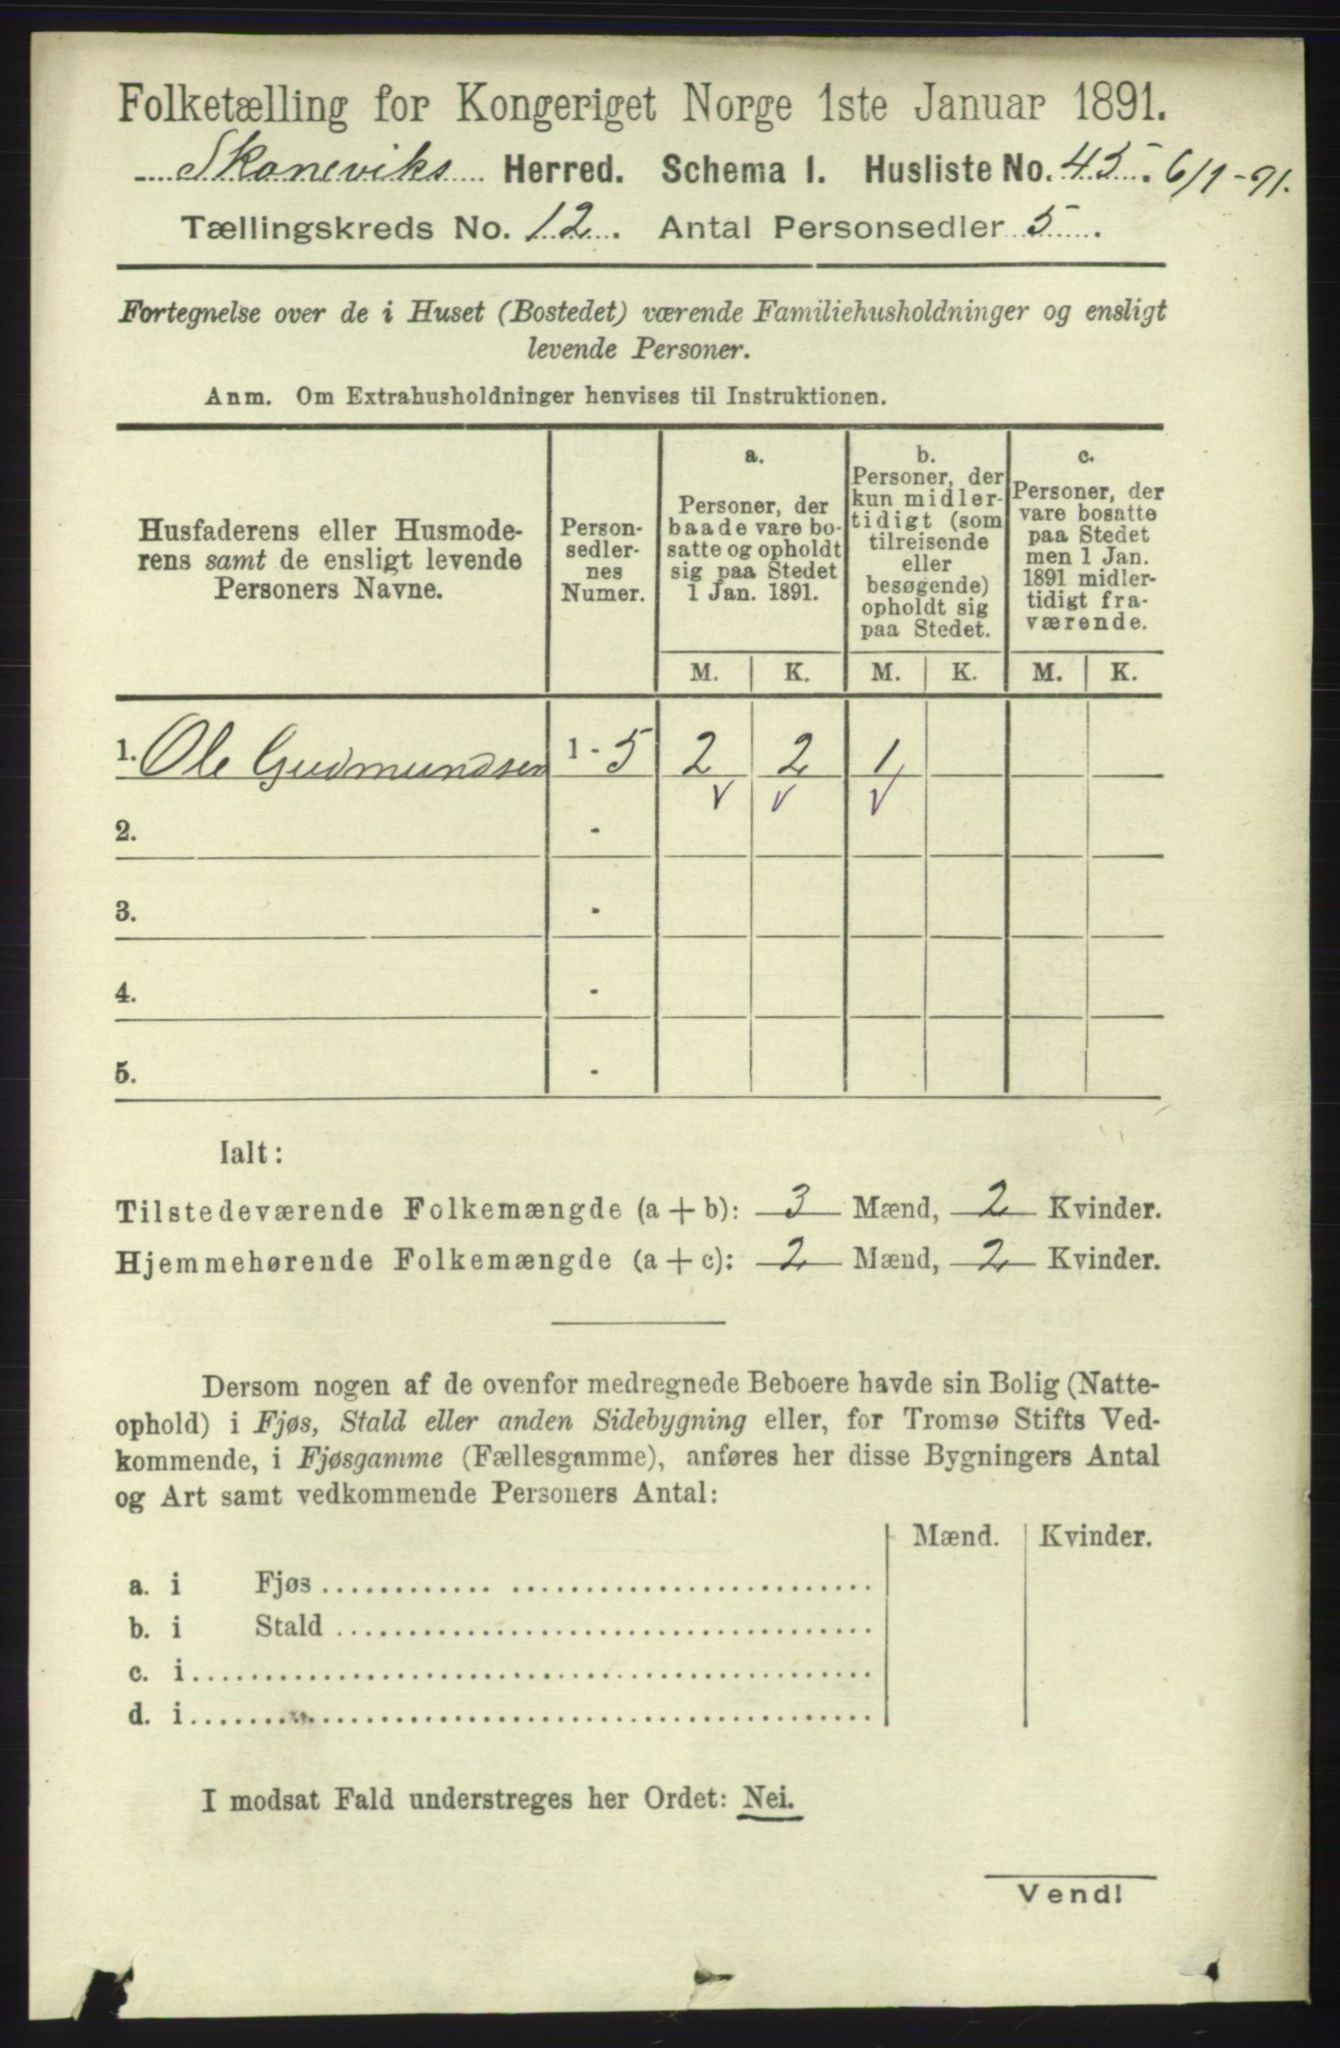 Folketælling for Kongeriget Norge 1ste Januar 1891.
Skoneviks Herred. Schema I. Husliste No. 45. 6/1-91.
Tællingskreds No. 12. Antal Personsedler 5.
Fortegnelse over de i Huset (Bostedet) værende Familiehusholdninger og ensligt
levende Personer.
Anm. Om Extrahusholdninger henvises til Instruktionen.
Husfaderens eller Husmode-
rens samt de ensligt levende
Personers Navne.
Person-
sedler-
nes
Numer.
a.
Personer, der
baade vare bo-
satte og opholdt
sig paa Stedet
1 Jan. 1891.
b.
Personer, der
kun midler-
tidigt (som
tilreisende
eller
besøgende)
opholdt sig
paa Stedet.
c.
Personer, der
vare bosatte
paa Stedet
men 1 Jan.
1891 midler-
tidigt fra-
værende.
M. K. M. K. M. K.
1. Ole Gudmundsen 1 - 5 2 2 1
v v v
2. -
3. -
4. -
5. -
Ialt:
Tilstedeværende Folkemængde (a + b): 3 Mænd, 2 Kvinder.
Hjemmehørende Folkemængde (a + c): 2 Mænd, 2 Kvinder.
Dersom nogen af de ovenfor medregnede Beboere havde sin Bolig (Natte-
ophold) i Fjøs, Stald eller anden Sidebygning eller, for Tromsø Stifts Ved-
kommende, i Fjøsgamme (Fællesgamme), anføres her disse Bygningers Antal
og Art samt vedkommende Personers Antal:
Mænd. Kvinder.
a. i Fjøs
b. i Stald
c. i
d. i
I modsat Fald understreges her Ordet: Nei.
Vend!